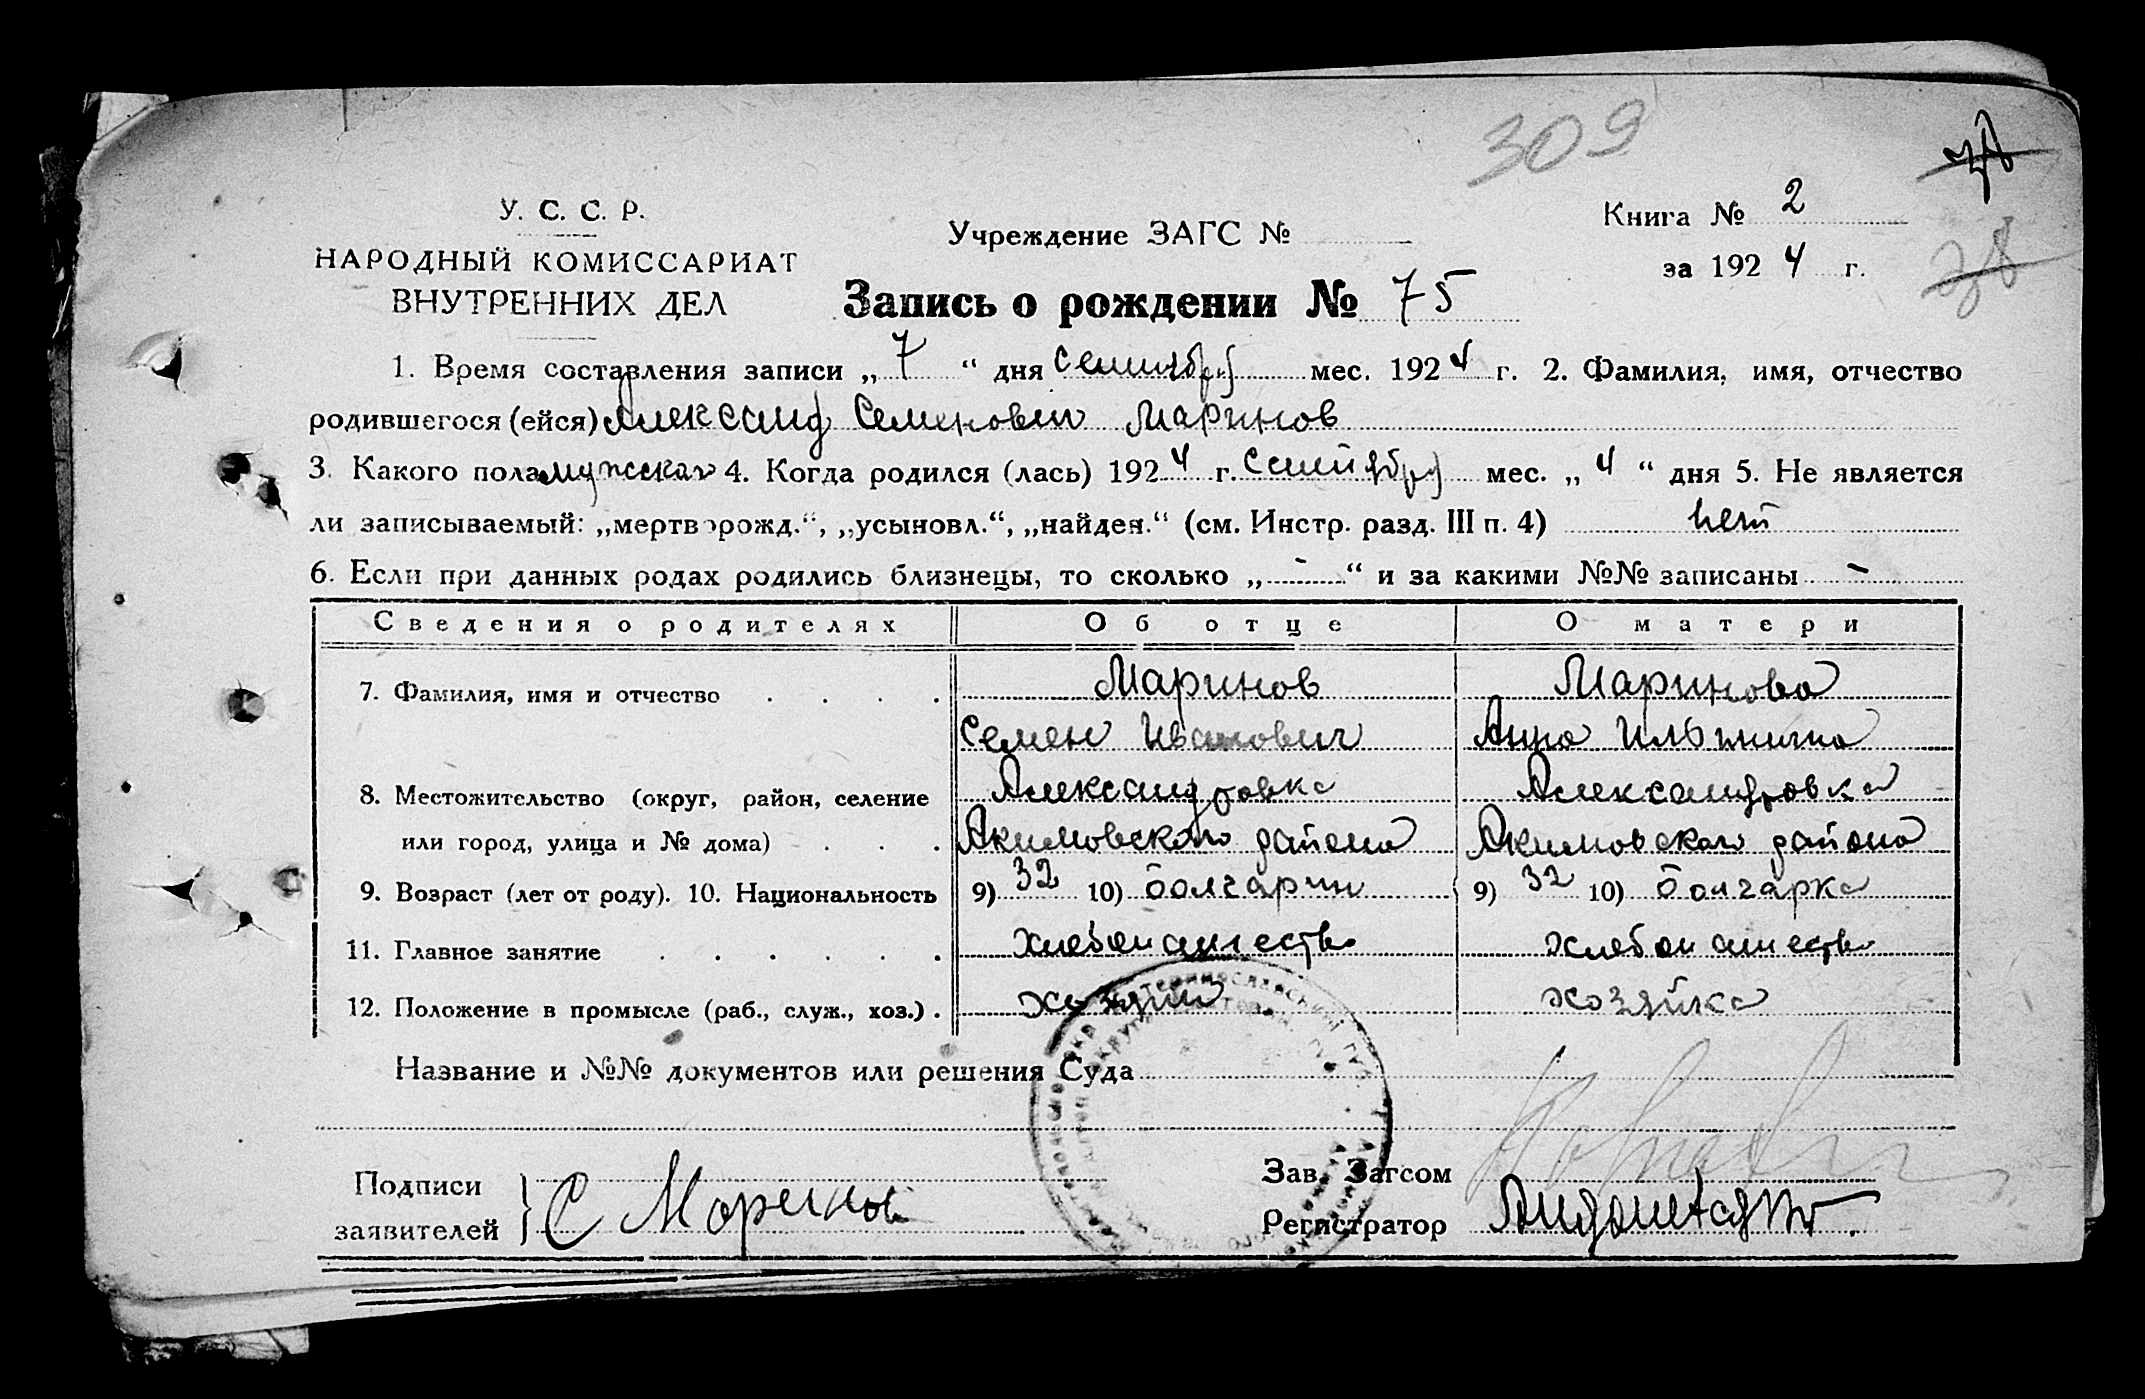 309
У. С. С. Р.
НАРОДНЫЙ КОМИССАРИАТ
ВНУТРЕННИХ ДЕЛ
Учреждение ЗАГС №
Книга № 2
за 1924 г.
Запись о рождении № 75
1. Время составления записи „7“ дня сентября мес. 1924 г. 2. Фамилия, имя, отчество
родившегося (ейся) Александ Семенович Маринов
3. Какого пола мужскаго 4. Когда родился (лась) 1924 г. сентября мес. „4“ дня 5. Не является
ли записываемый: „мертворожд.“, „усыновл.“, „найден.“ (см. Инстр. разд. III п. 4) нет
6. Если при данных родах родились близнецы, то сколько „-“ и за какими №№ записаны -
Сведения о родителях Об отце О матери
7. Фамилия, имя и отчество . . . . Маринов Маринова
Семен Иванович Анна Ильинична
8. Местожительство (округ, район, селение Александровка Александровка
или город, улица и № дома) . . . Акимовского района Акимовского района
9. Возраст (лет от роду). 10. Национальность 9) 32 10) болгарин 9) 32 10) болгарка
11. Главное занятие . . . . . . хлебопашество хлебопашество
12. Положение в промысле (раб., служ., хоз.) . хозяин хозяйка
Название и №№ документов или решения Суда
Подписи
заявителей
С Маринов
Зав. Загсом
Регистратор